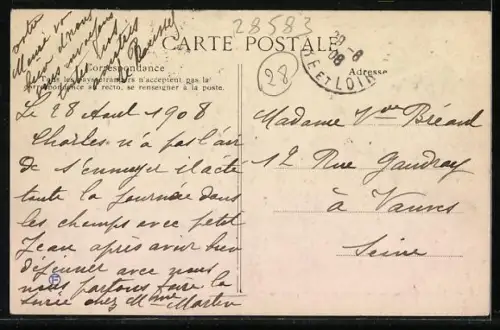 28583
CARTE POSTALE
Correspondance
Tous les pays étrangers n'acceptent pas la
correspondance au recto, se renseigner à la poste.
Adresse
28
ET LOIR
Le 28 Aout 1908
Charles n'a pas l'air
de s'ennuyer il a été
toute la journée dans
les champs avec petit
Jean après avoir bien
déjeuner avec nous
nous partons faire la
Soirée chez Mme Martin
Madame Vve Bréant
12 Rue Gaudray
à Vanves
Seine